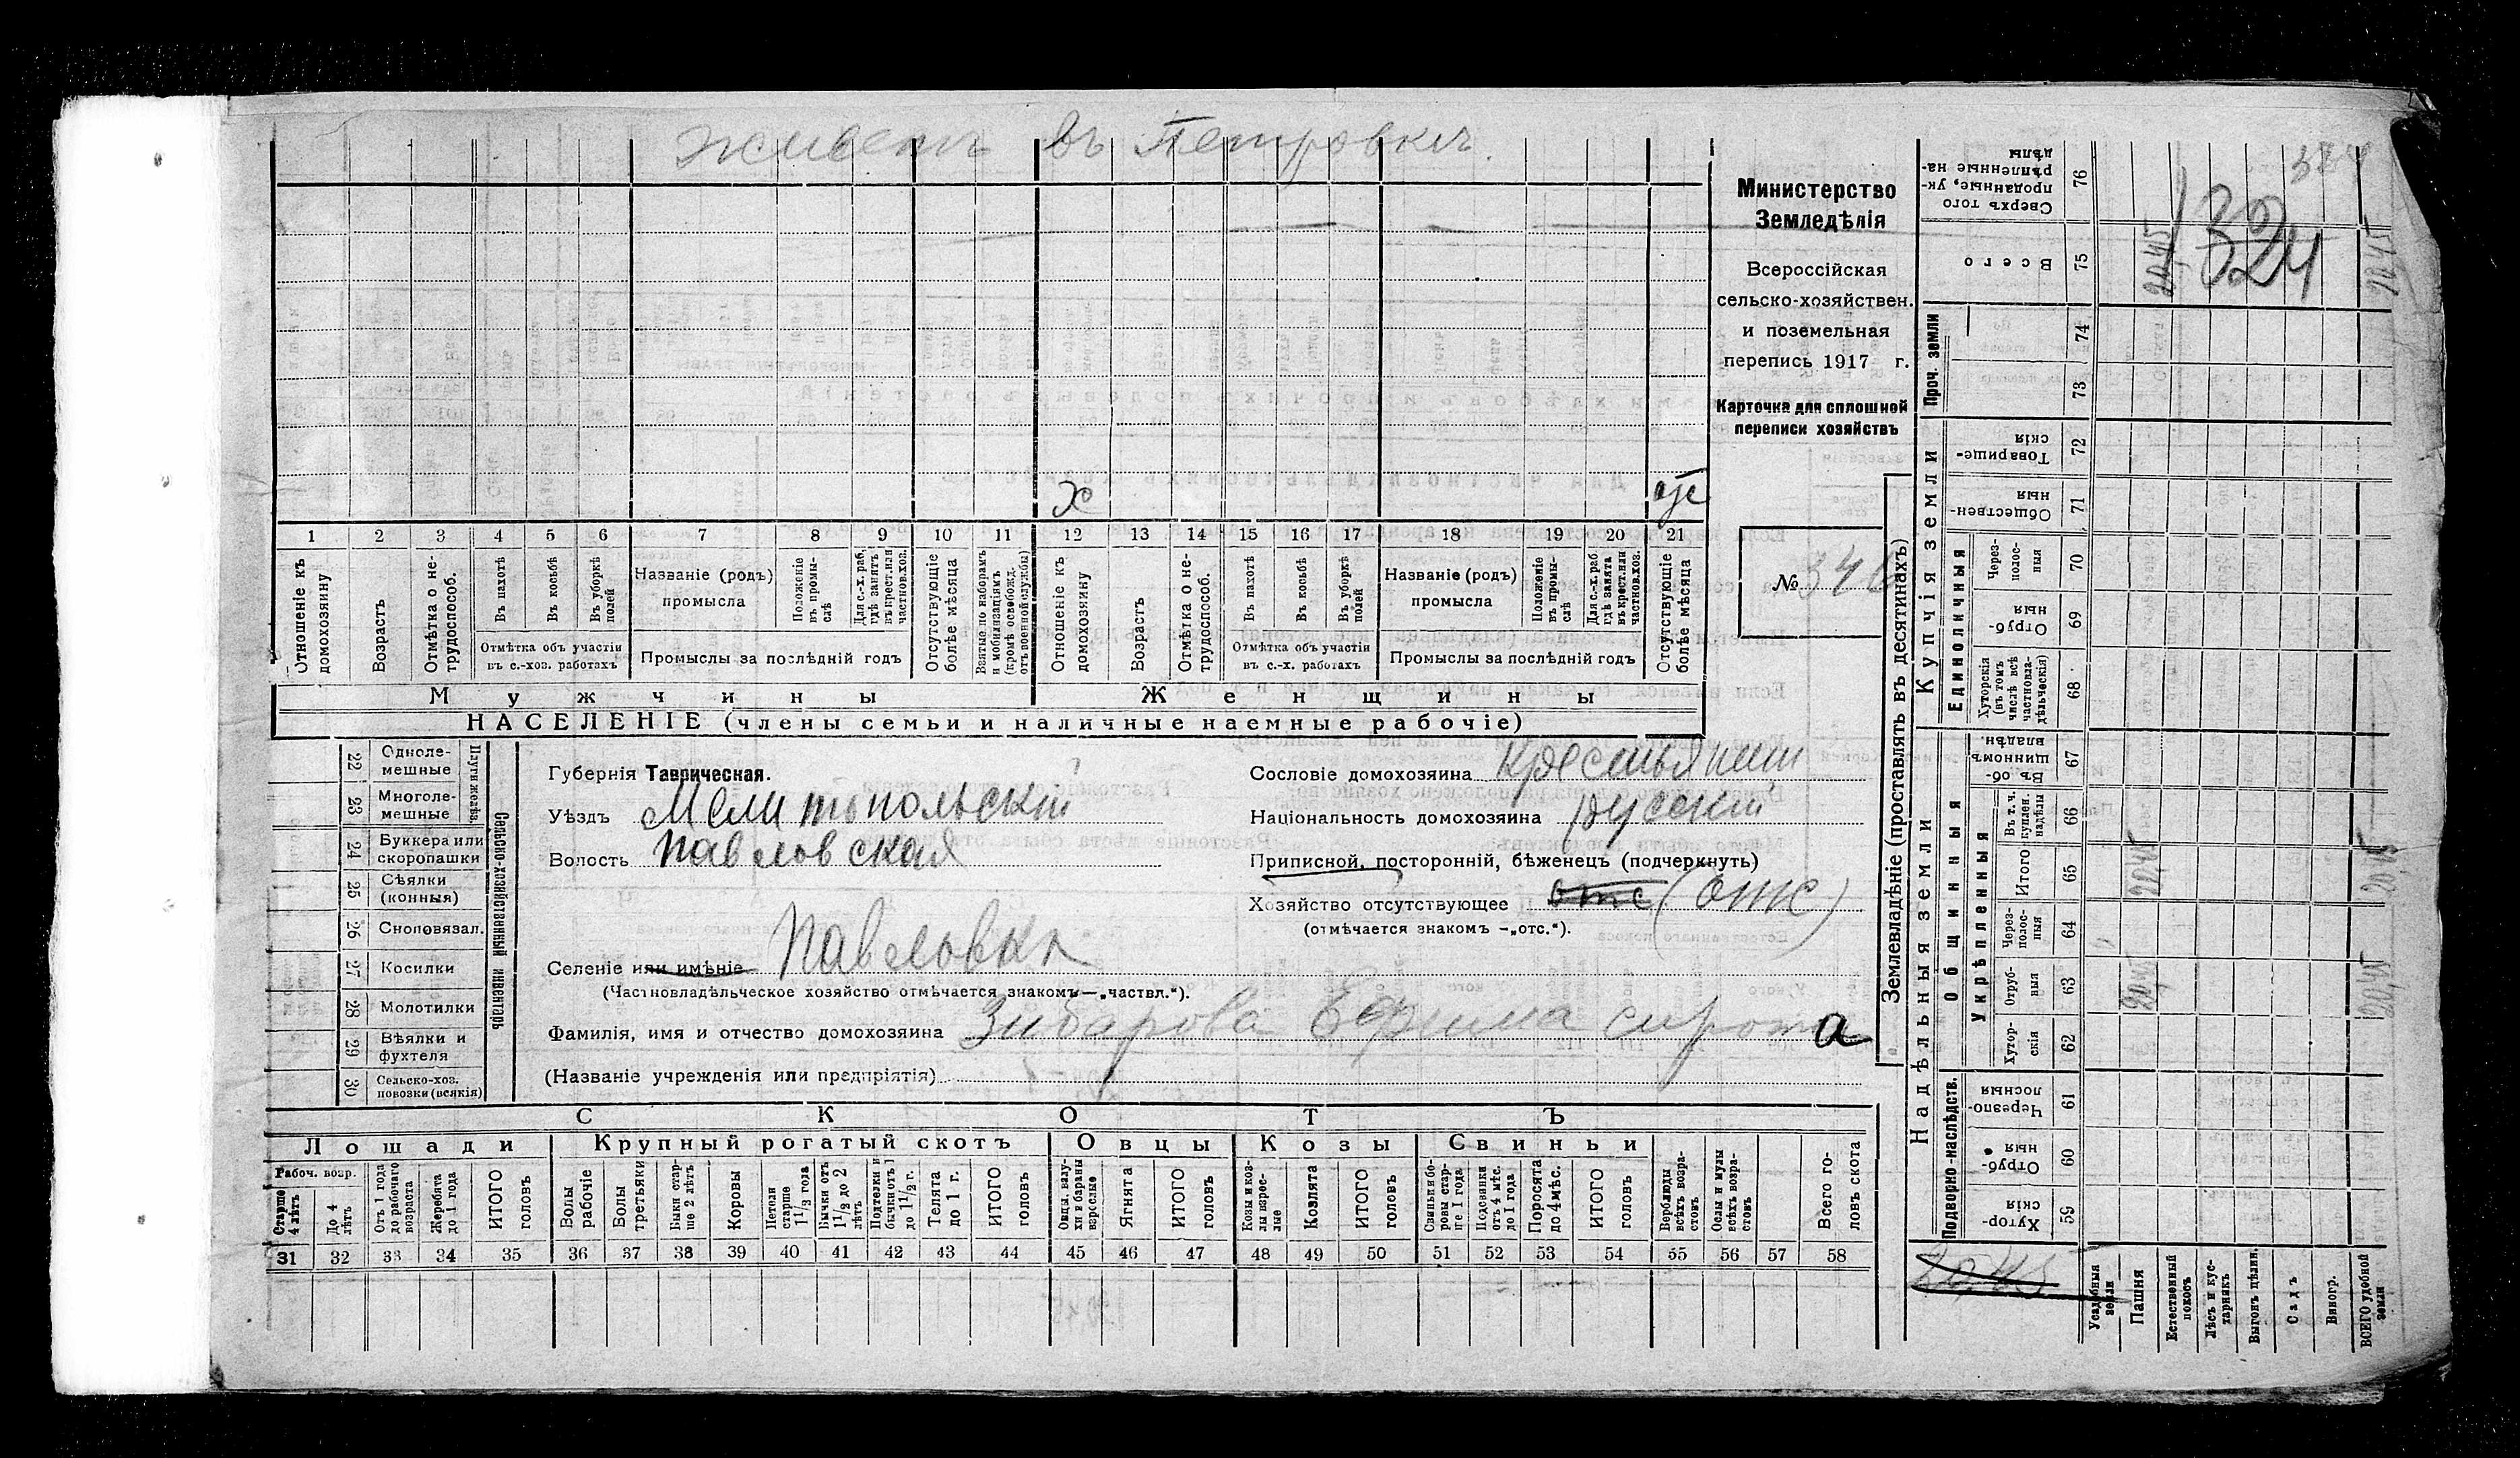 Живетъ въ Петровкѣ.
х
отс
1 2 3 4 5 6 7 8 9 10 11 12 13 14 15 16 17 18 19 20 21
Отношеніе къ домохозяину
Возрастъ
Отмѣтка о нетрудоспособ.
Въ пахотѣ
Въ косьбѣ
Въ уборкѣ полей
Отмѣтка объ участіи въ с.-хоз. работахъ
Названіе (родъ) промысла
Положеніе въ промыслѣ
Для с.-х. раб. гдѣ занятъ въ крест. или частнов. хоз.
Промыслы за послѣдній годъ
Отсутствующіе болѣе мѣсяца
Взятые по наборамъ и мобилизаціямъ (кромѣ освобожд. отъ военной службы)
Отношеніе къ домохозяину
Возрастъ
Отмѣтка о нетрудоспособ.
Въ пахотѣ
Въ косьбѣ
Въ уборкѣ полей
Отмѣтка объ участіи въ с.-х. работахъ
Названіе (родъ) промысла
Положеніе въ промыслѣ
Для с.-х. раб. гдѣ занята въ крест. или частнов. хоз.
Промыслы за послѣдній годъ
Отсутствующіе болѣе мѣсяца
Мужчины Женщины
НАСЕЛЕНІЕ (члены семьи и наличные наемные рабочіе)
Министерство
Земледѣлія
Всероссійская
сельско-хозяйствен.
и поземельная
перепись 1917 г.
Карточка для сплошной
переписи хозяйствъ
№
22 Одноле-мешные
23 Многоле-мешные
Плуги желѣз.
24 Буккера или скоропашки
25 Сѣялки (конныя)
26 Сноповязал.
27 Косилки
28 Молотилки
29 Вѣялки и фухтеля
30 Сельско-хоз. повозки (всякія)
Сельско-хозяйственный инвентарь
Губернія Таврическая.
Уѣздъ Мелитопольскій
Волость Павловская
Селеніе или имѣніе Павловка
(Частновладѣльческое хозяйство отмѣчается знакомъ—„частвл.“).
Фамилія, имя и отчество домохозяина Зибарова Ефима сирота
(Названіе учрежденія или предпріятія)
Сословіе домохозяина Крестьянинъ
Національность домохозяина русскій
Приписной, посторонній, бѣженецъ (подчеркнуть)
Хозяйство отсутствующее отс (отс)
(отмѣчается знакомъ –„отс.“).
СКОТЪ
Лошади Крупный рогатый скотъ Овцы Козы Свиньи
Рабоч. возр.
Старше 4 лѣтъ
До 4 лѣтъ
Отъ 1 года до рабочаго возраста
Жеребята до 1 года
ИТОГО головъ
Волы рабочіе
Волы третьяки
Быки старше 2 лѣтъ
Коровы
Нетели старше 1 1/2 года
Бычки отъ 1 1/2 до 2 лѣтъ
Подтелки и бычки отъ 1 до 1 1/2 г.
Телята до 1 г.
ИТОГО головъ
Овцы, валухи и бараны взрослые
Ягнята
ИТОГО головъ
Козы и козлы взрослые
Козлята
ИТОГО головъ
Свиньи и боровы старше 1 года
Подсвинки отъ 4 мѣс. до 1 года
Поросята до 4 мѣс.
ИТОГО головъ
Верблюды всѣхъ возрастовъ
Ослы и мулы всѣхъ возрастовъ
Всего головъ скота
31 32 33 34 35 36 37 38 39 40 41 42 43 44 45 46 47 48 49 50 51 52 53 54 55 56 57 58
Землевладѣніе (проставлять въ десятинахъ)
Сверхъ того проданные, укрѣпленные надѣлы 76
Всего 75 20,45 20,45
324
324
Проч. земли 74 73
Купчія земли
Товарищескія 72
Общественныя 71
Единоличныя
Через-полосныя 70
Отрубныя 69
Хуторскія (въ томъ числѣ всѣ частновладѣльческія) 68
Надѣльныя земли
Общинныя
Въ общинномъ владѣн. 67
Укрѣпленныя
Въ т. ч. куплен. надѣлы 66
Итого 65 20,45 20,45
Через-полосныя 64
Отрубныя 63 20,45 20,45
Хуторскія 62
Подворно-наслѣдств.
Черезполосныя 61
Отрубныя 60
Хуторскія 59
20,45
Усадебныя земли
Пашня
Естественный покосъ
Лѣсъ и кустарникъ
Выгонъ цѣлин.
Садъ
Виногр.
ВСЕГО удобной земли